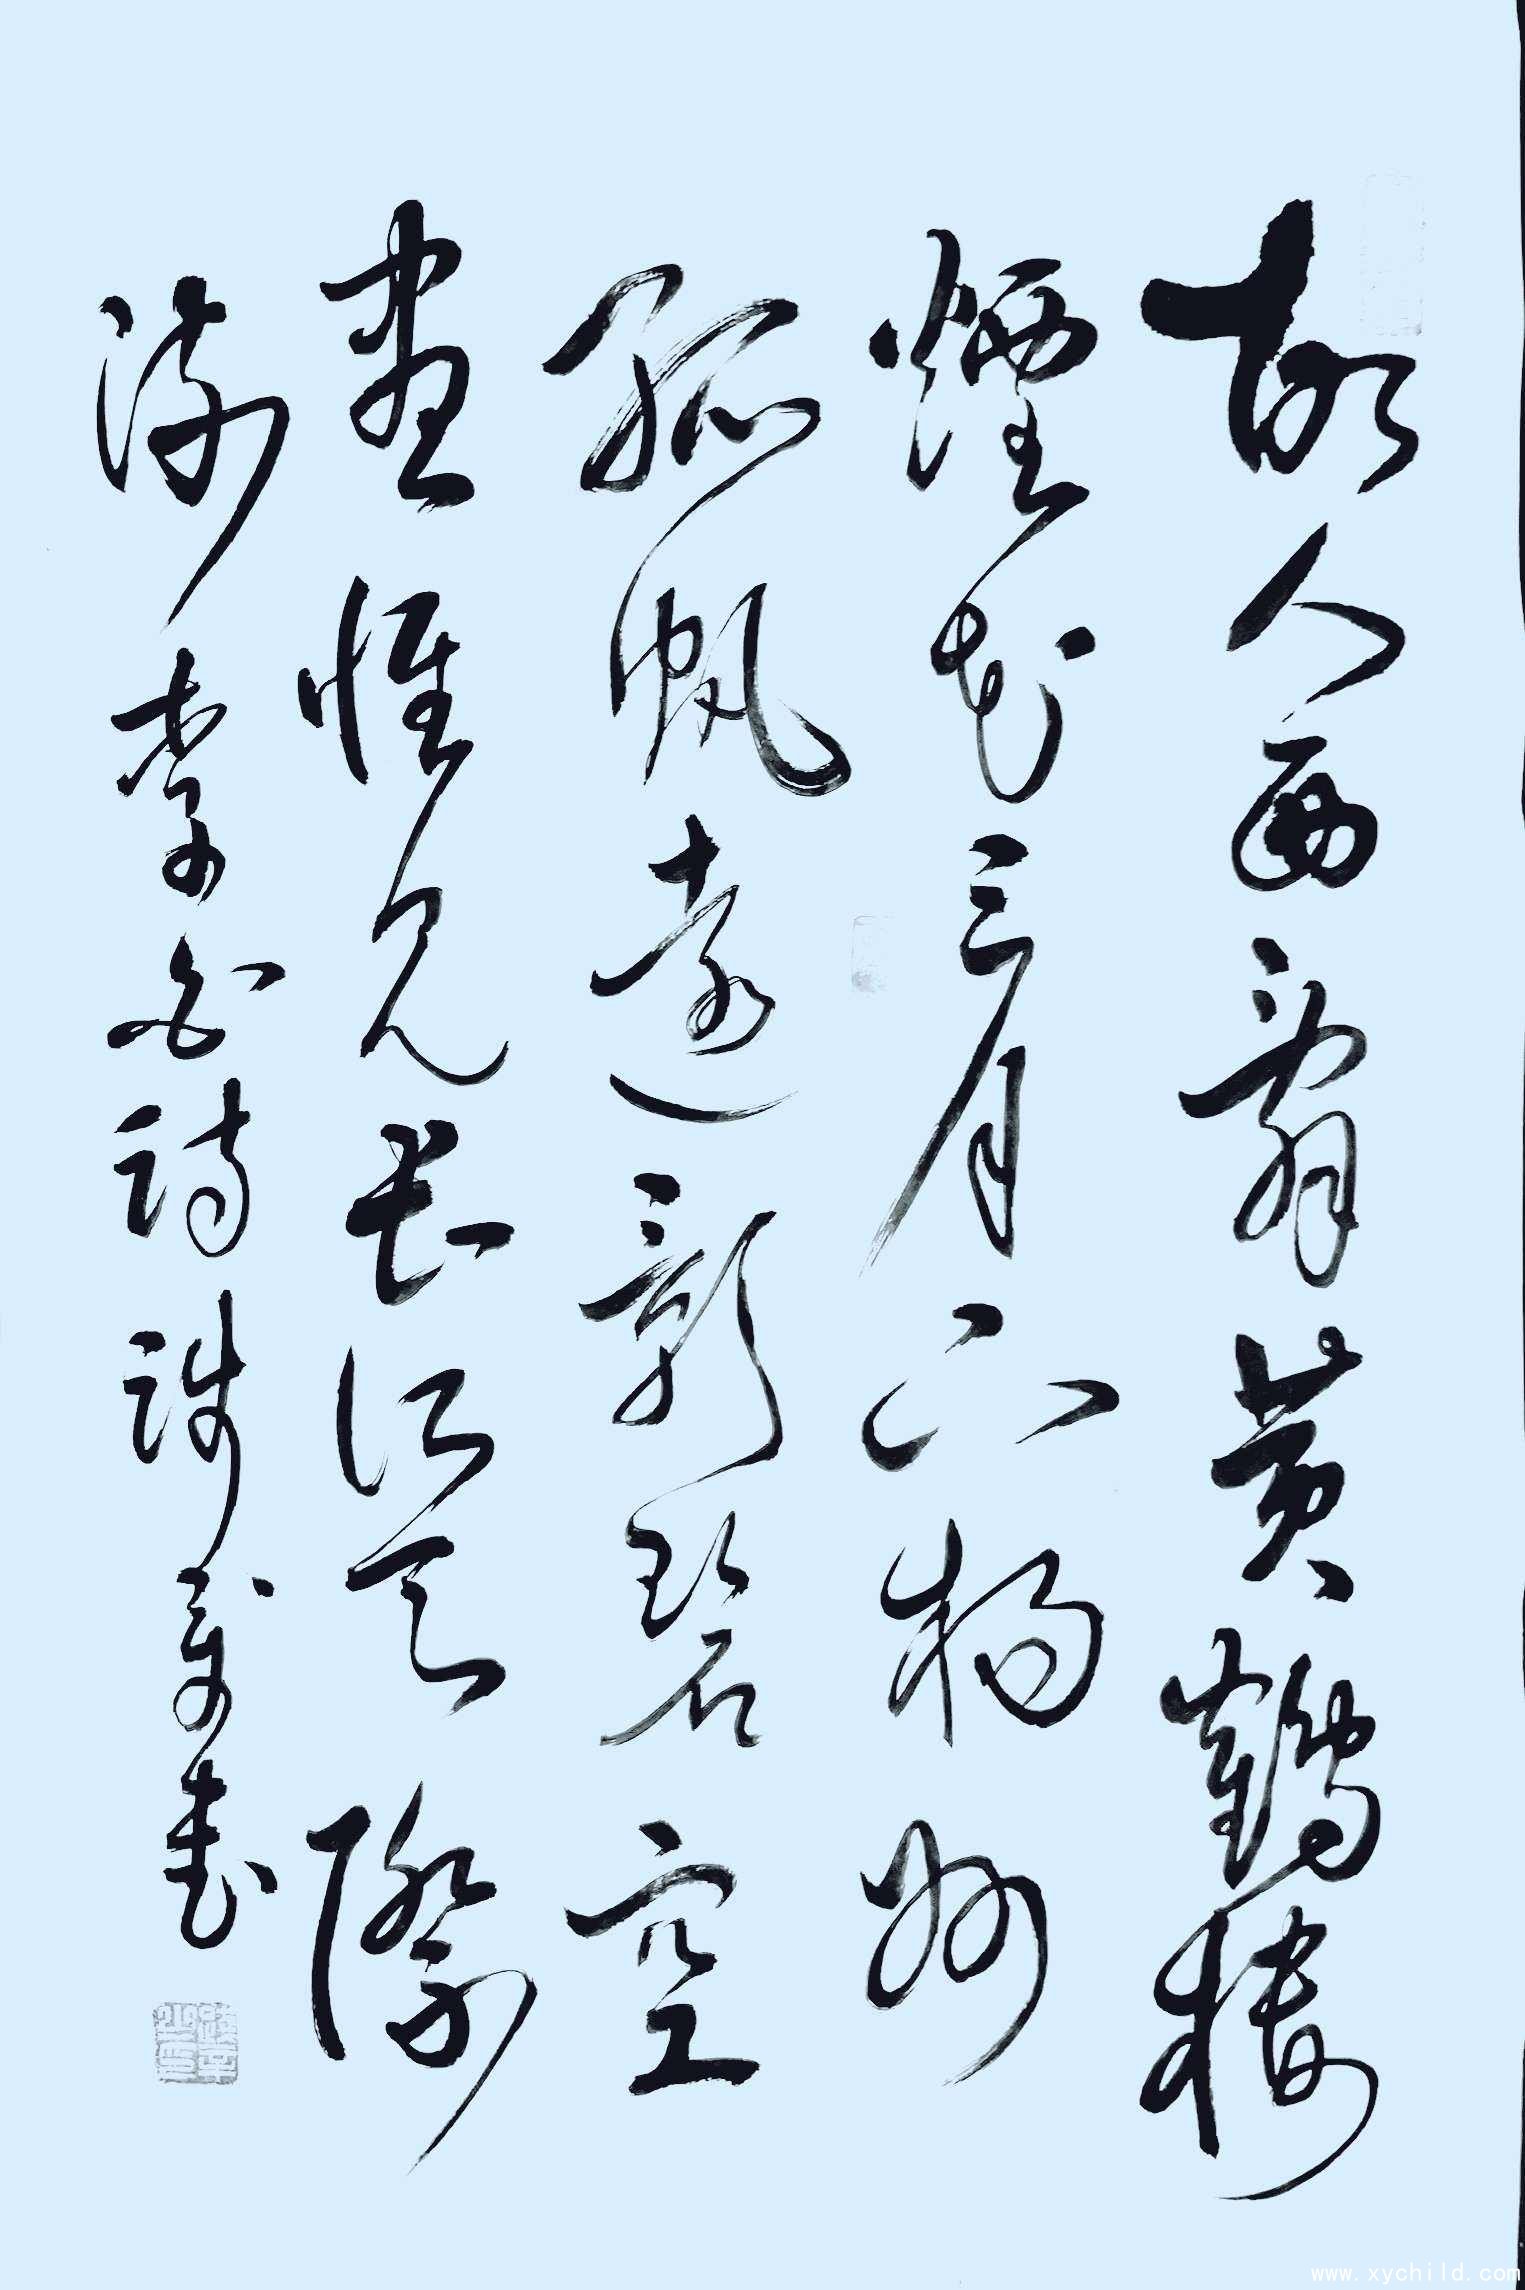 故人西辭黃鶴樓
煙花三月下揚州
孤帆遠影碧空
盡惟見長江天際
流李白詩
www.xychild.com